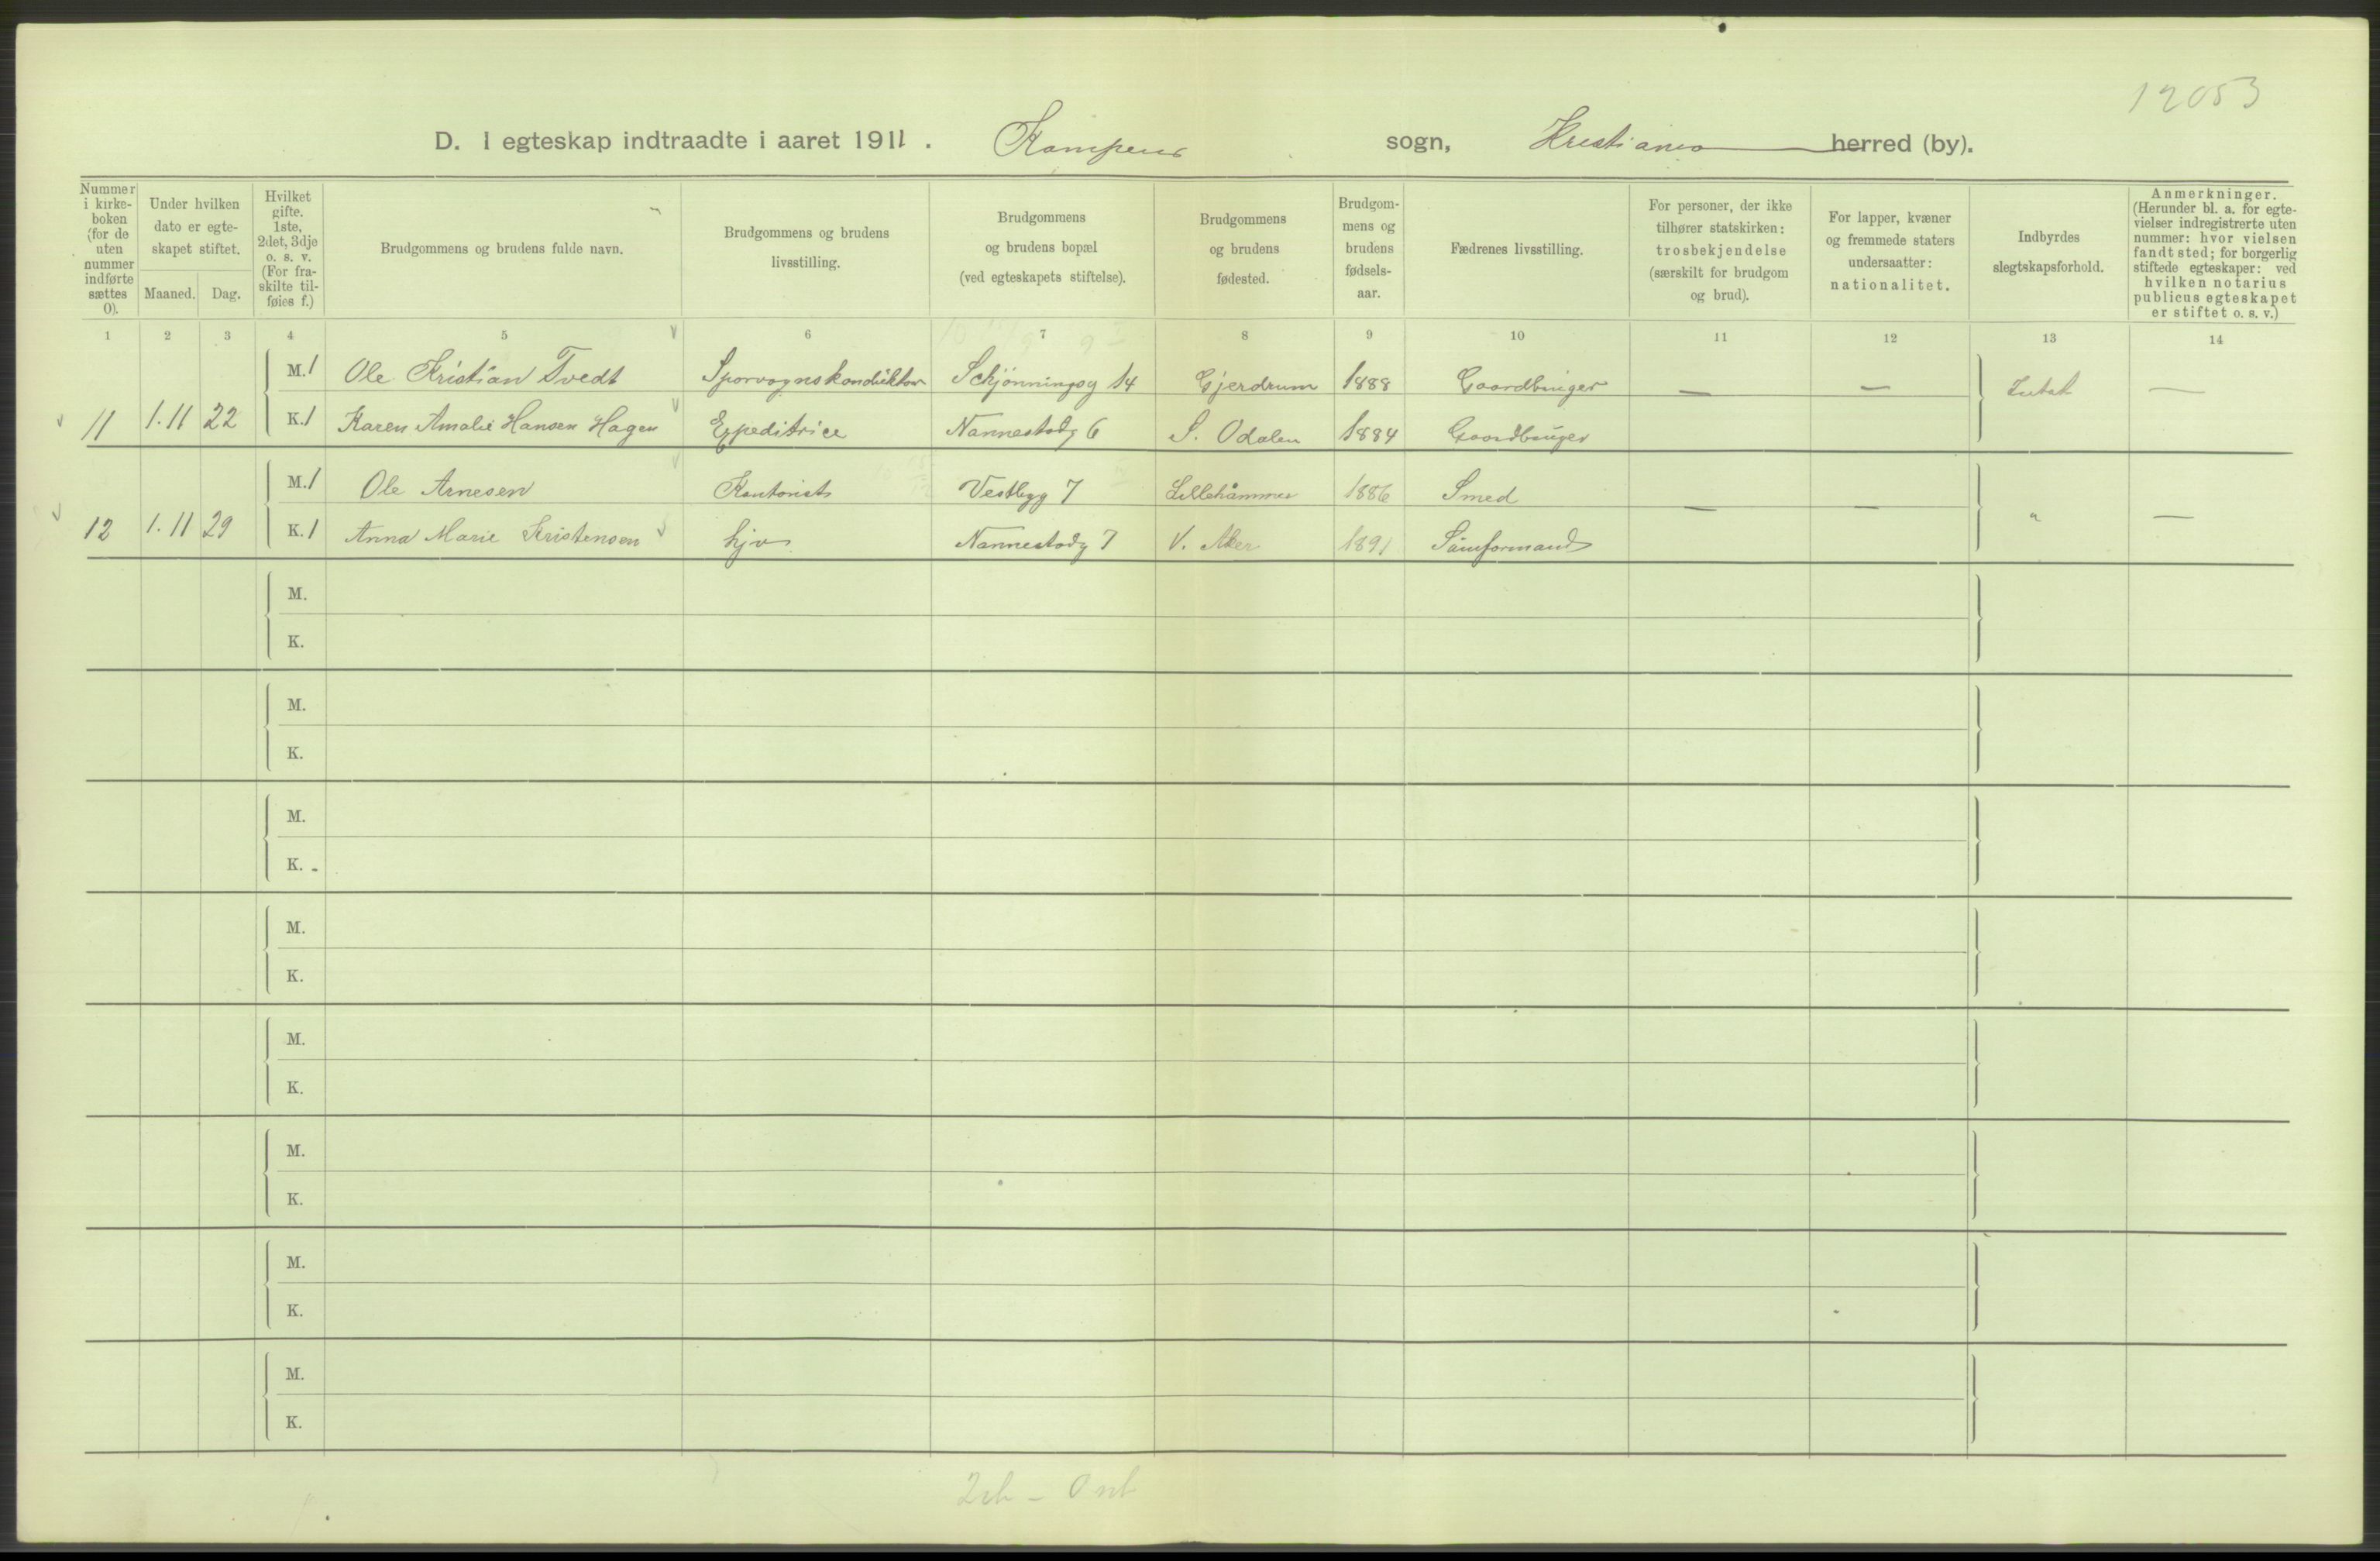 12053
D. I egteskap indtraadte i aaret 1911. Kampens sogn, Kristiania herred (by).
Nummer i kirkeboken (for de uten nummer indførte sættes 0).
Under hvilken dato er egteskapet stiftet.
Maaned. Dag.
Hvilket gifte. 1ste, 2det, 3dje o. s. v. (For fraskilte tilføies f.)
Brudgommens og brudens fulde navn.
Brudgommens og brudens livsstilling.
Brudgommens og brudens bopæl (ved egteskapets stiftelse).
Brudgommens og brudens fødested.
Brudgommens og brudens fødselsaar.
Fædrenes livsstilling.
For personer, der ikke tilhører statskirken: trosbekjendelse (særskilt for brudgom og brud).
For lapper, kvæner og fremmede staters undersaatter: nationalitet.
Indbyrdes slegtskapsforhold.
Anmerkninger. (Herunder bl. a. for egtevielser indregistrerte uten nummer: hvor vielsen fandt sted; for borgerlig stiftede egteskaper: ved hvilken notarius publicus egteskapet er stiftet o. s. v.)
1 2 3 4 5 6 7 8 9 10 11 12 13 14
M. 1 Ole Kristian Tvedt Sporvognskonduktør Schjønningsg 14 Gjerdrum 1888 Gaardbruger — — Intet —
11 1.11 22 K. 1 Karen Amalie Hansen Hagen Expeditrice Nannestadg 6 S. Odalen 1884 Gaardbruger
M. 1 Ole Arnesen Kontorist Vestbyg 7 Lillehammer 1886 Smed
12 1.11 29 K. 1 Anna Marie Kristensen hjv Nannestadg 7 V. Aker 1891 — — " —
M.
K.
M.
K.
M.
K.
M.
K.
M.
K.
M.
K.
M.
K.
M.
K.